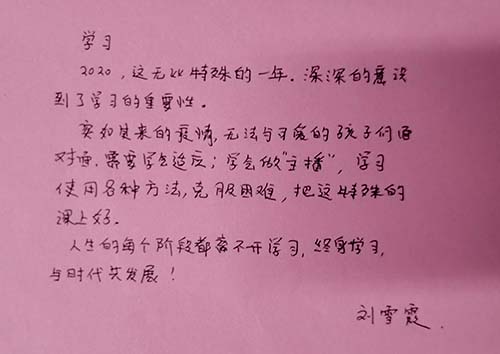 学习
2020，这无比特殊的一年．深深的意识
到了学习的重要性。
突如其来的疫情，无法与可爱的孩子们面
对面，需要学会适应；学会做“主播”，学习
使用各种方法，克服困难，把这特殊的
课上好。
人生的每个阶段都离不开学习，终身学习，
与时代共发展！
刘雪霞．